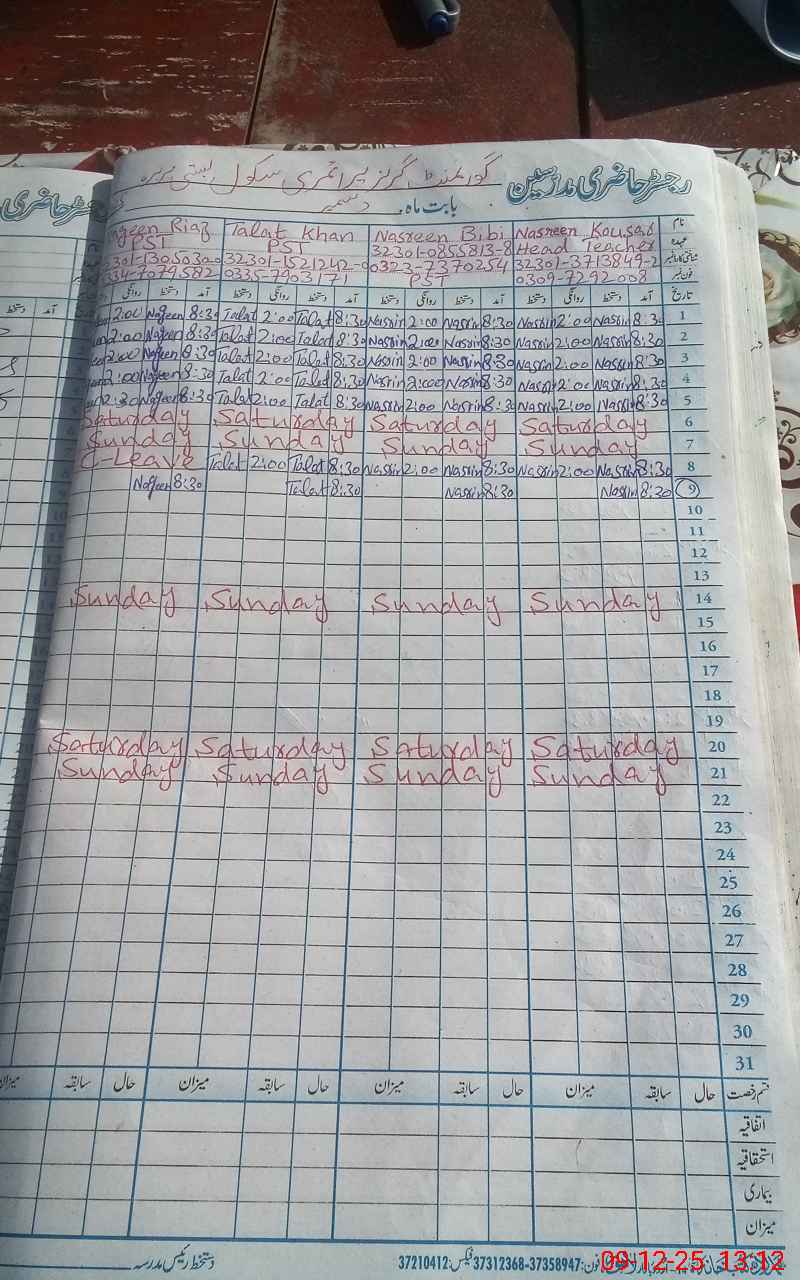 رجسٹر حاضری مدرسین گورنمنٹ گرلز پرائمری سکول بستی
بابت ماہ دسمبر
نام Nasreen Kousar Nasreen Bibi Talat Khan Riaz
عہدہ Head Teacher 32301-0855813-8 PST PST
32301-3713849-2 0323-7370254 32301-1521242-0
فون نمبر 0309-7292008 PST 0335-7903171 0334-7079582
تاریخ آمد دستخط روانگی دستخط آمد دستخط روانگی دستخط آمد دستخط روانگی دستخط آمد دستخط روانگی
1 8:30 Nasrin 2:00 Nasrin 8:30 Nasrin 2:00 Nasrin 8:30 Talat 2:00 Talat 8:30 Nageen 2:00
2 8:30 Nasrin 2:00 Nasrin 8:30 Nasrin 2:00 Nasrin 8:30 Talat 2:00 Talat 8:30 Nageen 2:00
3 8:30 Nasrin 2:00 Nasrin 8:30 Nasrin 2:00 Nasrin 8:30 Talat 2:00 Talat 8:30 Nageen 2:00
4 8:30 Nasrin 2:00 Nasrin 8:30 Nasrin 2:00 Nasrin 8:30 Talat 2:00 Talat 8:30 Nageen 2:00
5 8:30 Nasrin 2:00 Nasrin 8:3 Nasrin 2:00 Nasrin 8:30 Talat 2:00 Talat 8:30 Nageen
6 Saturday Saturday Saturday Saturday
7 Sunday Sunday Sunday Sunday
8 8:30 Nasrin 2:00 Nasrin 8:30 Nasrin 2:00 Nasrin 8:30 Talat 2:00 Talat C-Leave
9 8:30 Nasrin 8:30 Nasrin 8:30 Talat 8:30 Nageen
10
11
12
13
14 Sunday Sunday Sunday Sunday
15
16
17
18
19
20 Saturday Saturday Saturday Saturday
21 Sunday Sunday Sunday Sunday
22
23
24
25
26
27
28
29
30
31
قسم رخصت حال سابقہ میزان حال سابقہ میزان حال سابقہ میزان حال سابقہ میزان
اتفاقیہ
استحقاقیہ
بیماری
میزان
دستخط رئیس مدرسہ
فون: 37358947-37312368 فیکس: 37210412
09-12-25 13:12